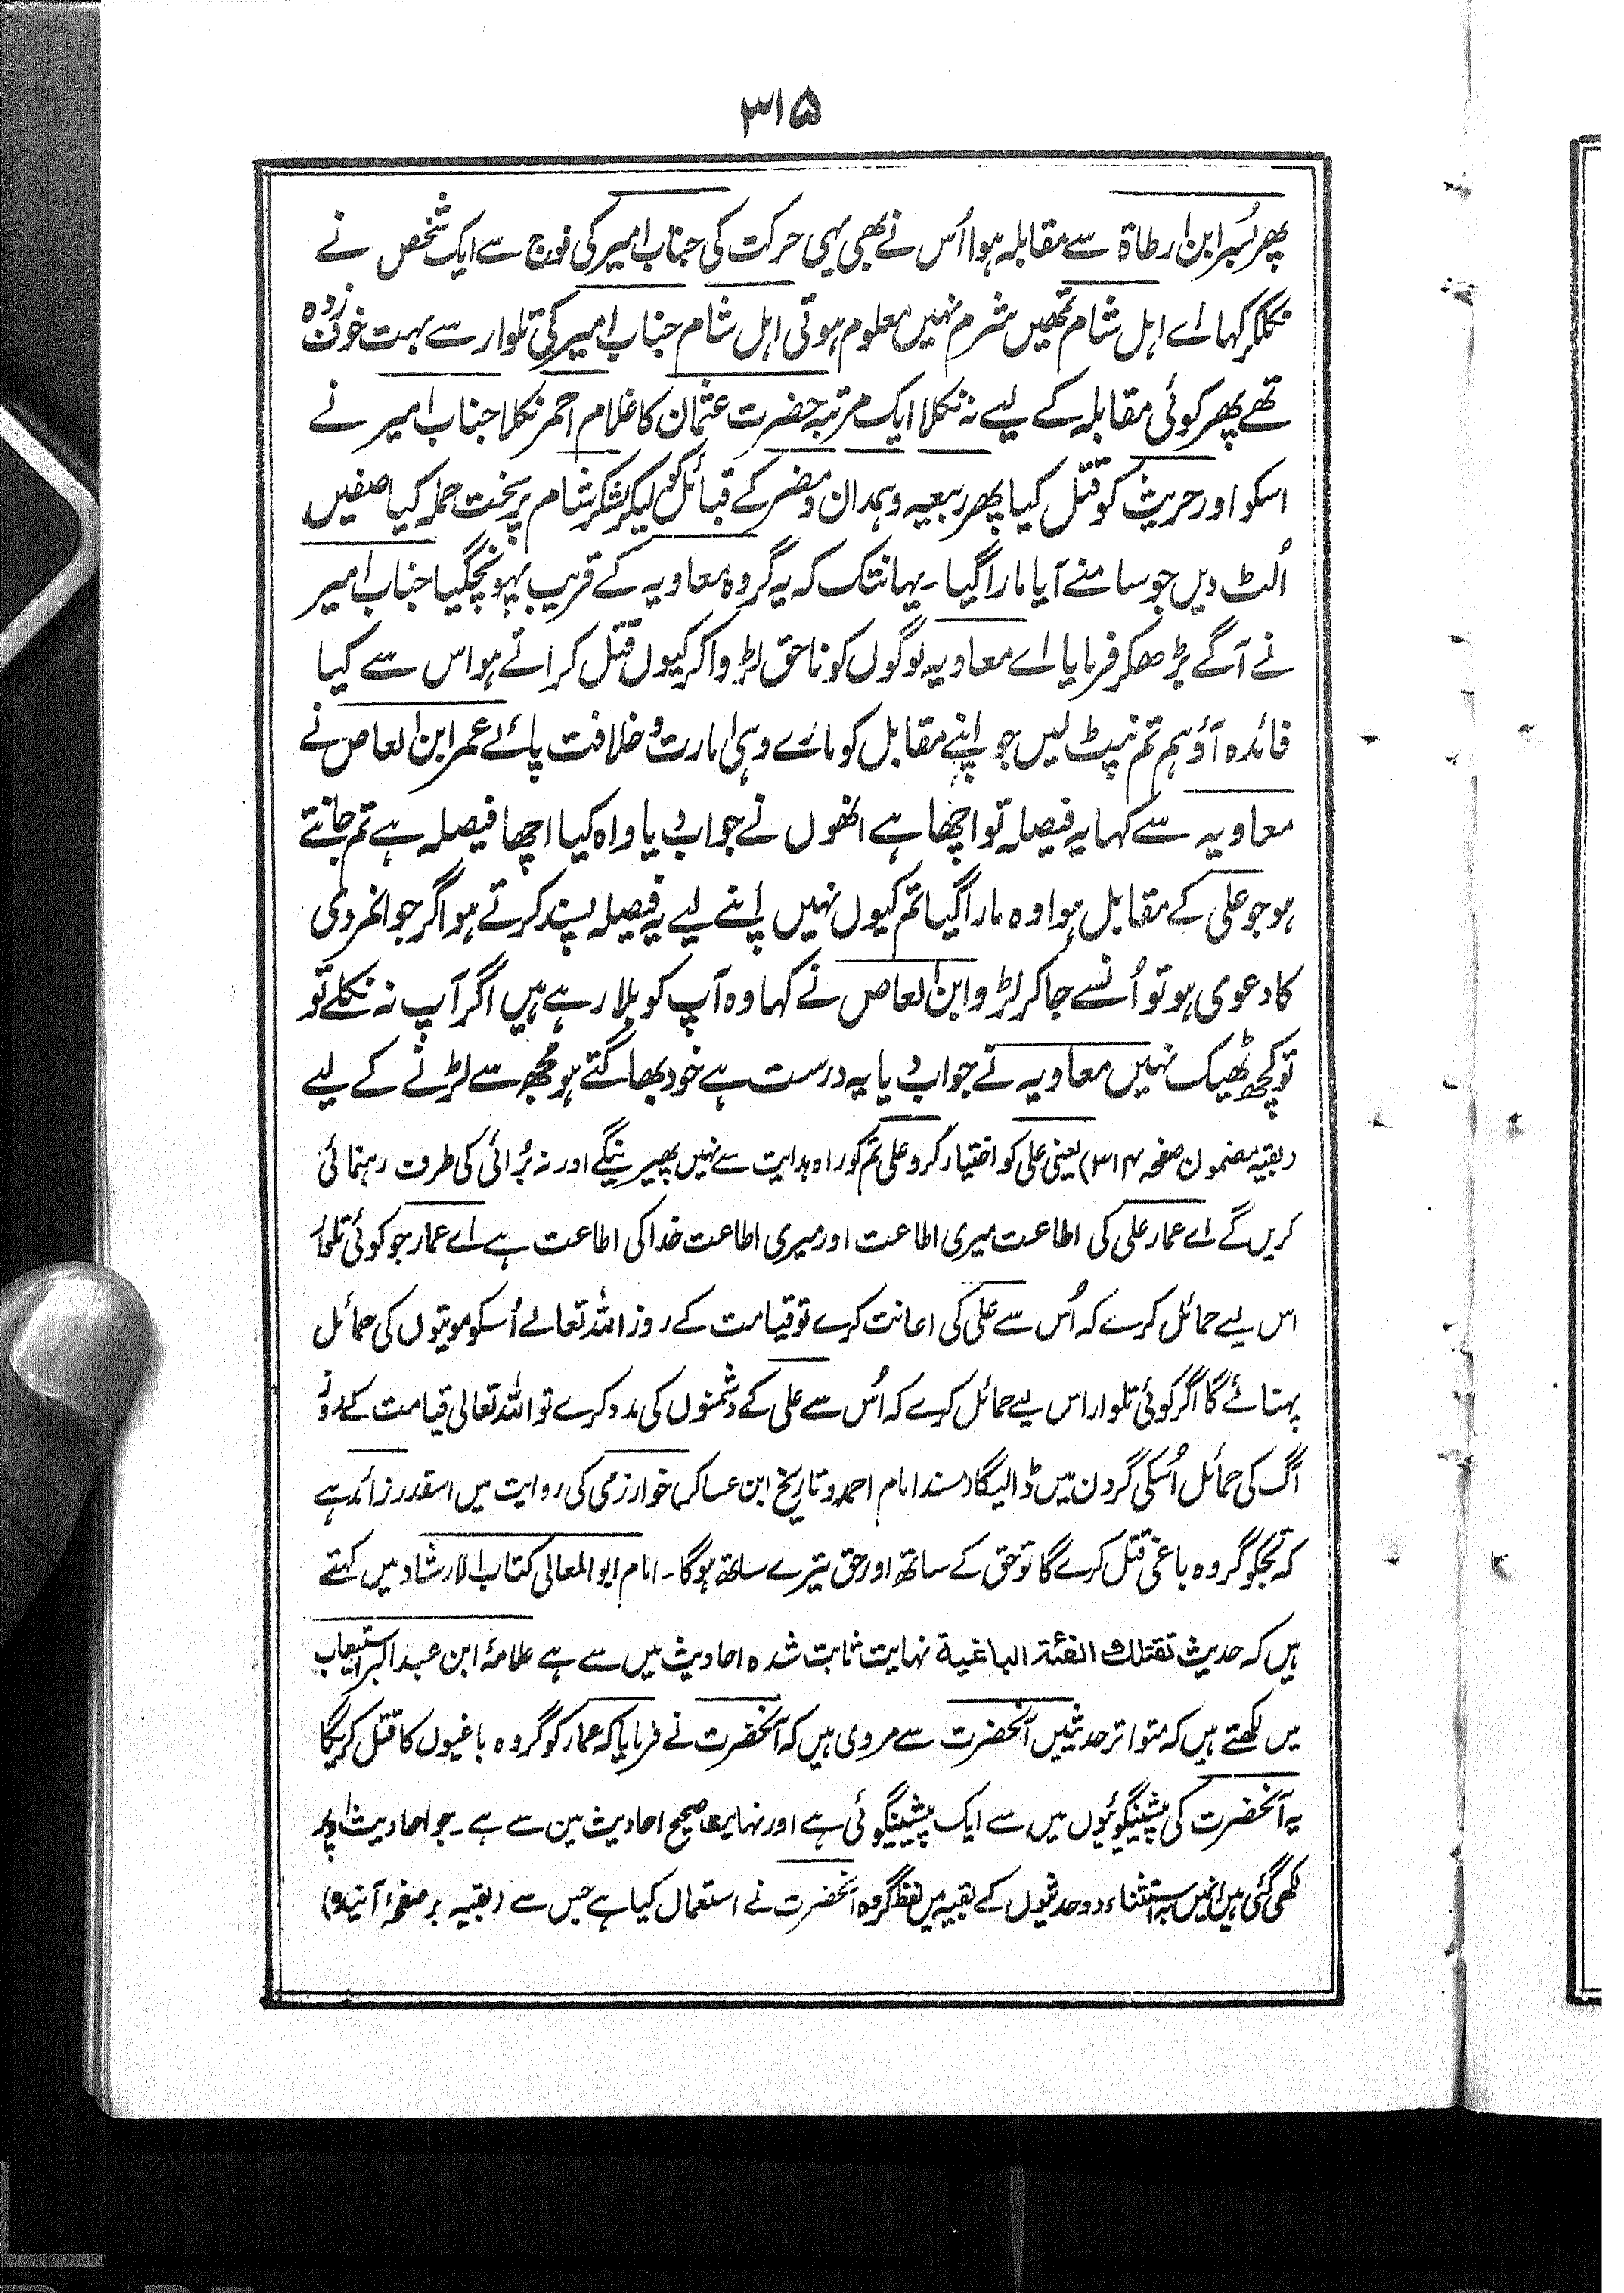 ۳۱۵
پھر بُسر ابن ارطاۃ سے مقابلہ ہوا اُس نے بھی یہی حرکت کی جناب امیر کی فوج سے ایک شخص نے
نکلکر کہا اے اہل شام تمھیں شرم نہیں معلوم ہوتی اہل شام جناب امیر کی تلوار سے بہت خوف زدہ
تھے پھر کوئی مقابلہ کے لیے نہ نکلا ایک مرتبہ حضرت عثمان کا غلام احمر نکلا جناب امیر نے
اسکو اور حریث کو قتل کیا پھر ربیعہ و ہمدان و مضر کے قبائل کو لیکر لشکر شام پر سخت حملہ کیا صفیں
اُلٹ دیں جو سامنے آیا مارا گیا۔ یہانتک کہ یہ گروہ معاویہ کے قریب پہونچگیا جناب امیر
نے آگے بڑھکر فرمایا اے معاویہ لوگوں کو ناحق لڑوا کر کیوں قتل کراتے ہو اس سے کیا
فائدہ آؤ ہم تم نپٹ لیں جو اپنے مقابل کو مارے وہی امارت و خلافت پائے عمر ابن العاص نے
معاویہ سے کہا یہ فیصلہ تو اچھا ہے انھوں نے جواب دیا واہ کیا اچھا فیصلہ ہے تم جانتے
ہو جو علی کے مقابل ہوا وہ مارا گیا تم کیوں نہیں اپنے لیے یہ فیصلہ پسند کرتے ہو اگر جوانمردی
کا دعوی ہو تو اُنسے جا کر لڑو ابن العاص نے کہا وہ آپ کو بلا رہے ہیں اگر آپ نہ نکلے تو
تو کچھ ٹھیک نہیں معاویہ نے جواب دیا یہ درست ہے خود بھاگتے ہو مجھ سے لڑنے کے لیے
(بقیہ مضمون صفحہ ۳۱۴) یعنی علی کو اختیار کرو علی تم کو راہ ہدایت سے نہیں پھیرینگے اور نہ بُرائی کی طرف رہنمائی
کریں گے اے عمار علی کی اطاعت میری اطاعت اور میری اطاعت خدا کی اطاعت ہے اے عمار جو کوئی تلوار
اس لیے حمائل کرے کہ اُس سے علی کی اعانت کرے تو قیامت کے روز اللہ تعالے اُسکو موتیوں کی حمائل
پہنائے گا اگر کوئی تلوار اس لیے حمائل کرے کہ اُس سے علی کے دشمنوں کی مدد کرے تو اللہ تعالی قیامت کے روز
آگ کی حمائل اُسکی گردن میں ڈالیگا مسند امام احمد و تاریخ ابن عساکر خوارزمی کی روایت میں اسقدر زائد ہے
کہ تجکو گروہ باغی قتل کرے گا تو حق کے ساتھ اور حق تیرے ساتھ ہوگا۔ امام ابو المعالی کتاب الارشاد میں کہتے
ہیں کہ حدیث تقتلك الفئة الباغية نہایت ثابت شدہ احادیث میں سے ہے علامۂ ابن عبد البر استیعاب
میں لکھتے ہیں کہ متواتر حدیثیں آنحضرت سے مروی ہیں کہ آنحضرت نے فرمایا کہ عمار کو گروہ باغیوں کا قتل کریگا
یہ آنحضرت کی پیشینگوئیوں میں سے ایک پیشینگوئی ہے اور نہایت صحیح احادیث مین سے ہے۔ جو احادیث اوپر
لکھی گئی ہیں انہیں بہ استثناء دو حدیثوں کے بقیہ میں لفظ گروہ آنحضرت نے استعمال کیا ہے جس سے (بقیہ بر صفحۂ آئیندہ)